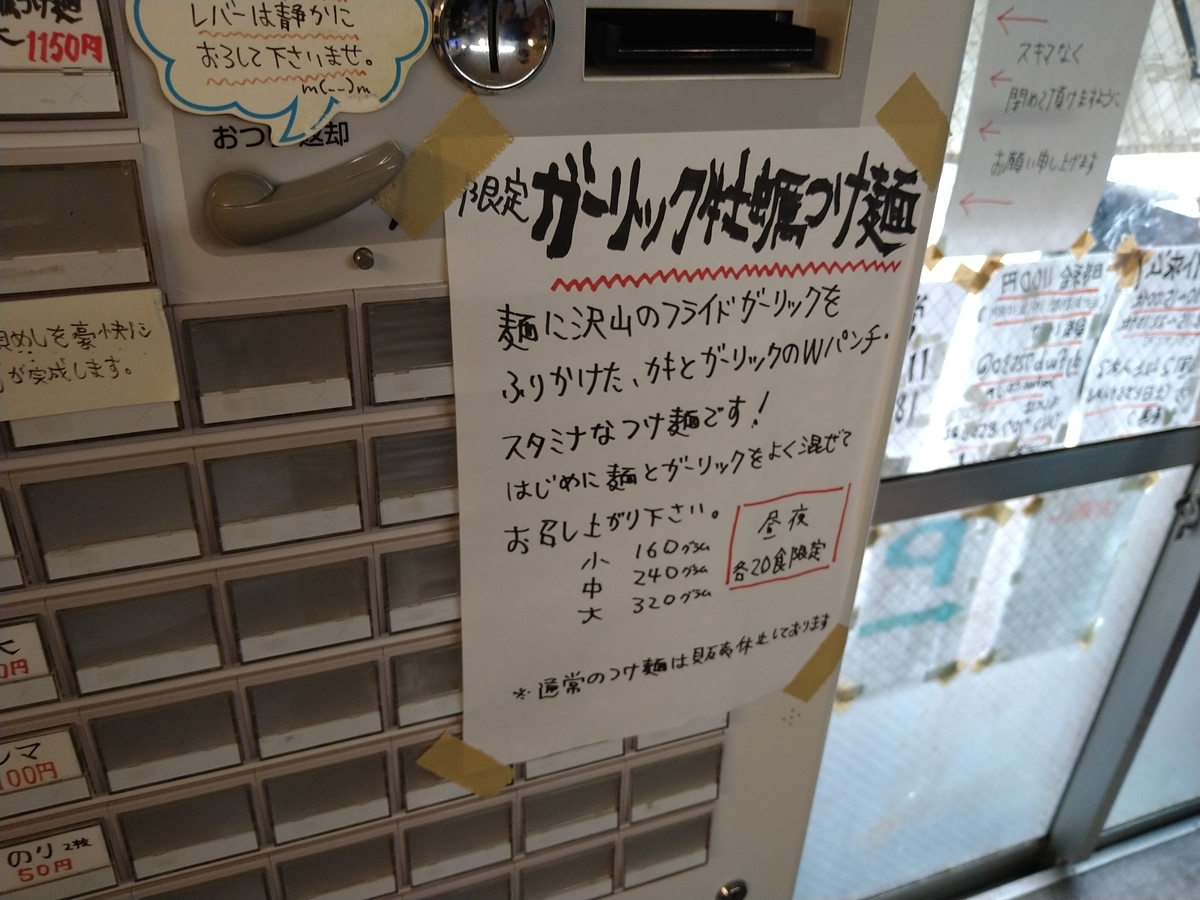 つけ麺
1150円
レバーは静かに
おろして下さいませ。
m(--)m
おつ 返却
めしを豪快に
が完成します。
大
0円
マ
100円
のり 2枚
50円
限定 ガーリック牡蠣つけ麺
麺に沢山のフライドガーリックを
ふりかけた、カキとガーリックのWパンチ・
スタミナなつけ麺です！
はじめに麺とガーリックをよく混ぜて
お召し上がり下さい。
小 160グラム
中 240グラム
大 320グラム
昼夜
各20食限定
※通常のつけ麺は販売休止しております
スキマなく
閉めて頂けますように
お願い申し上げます